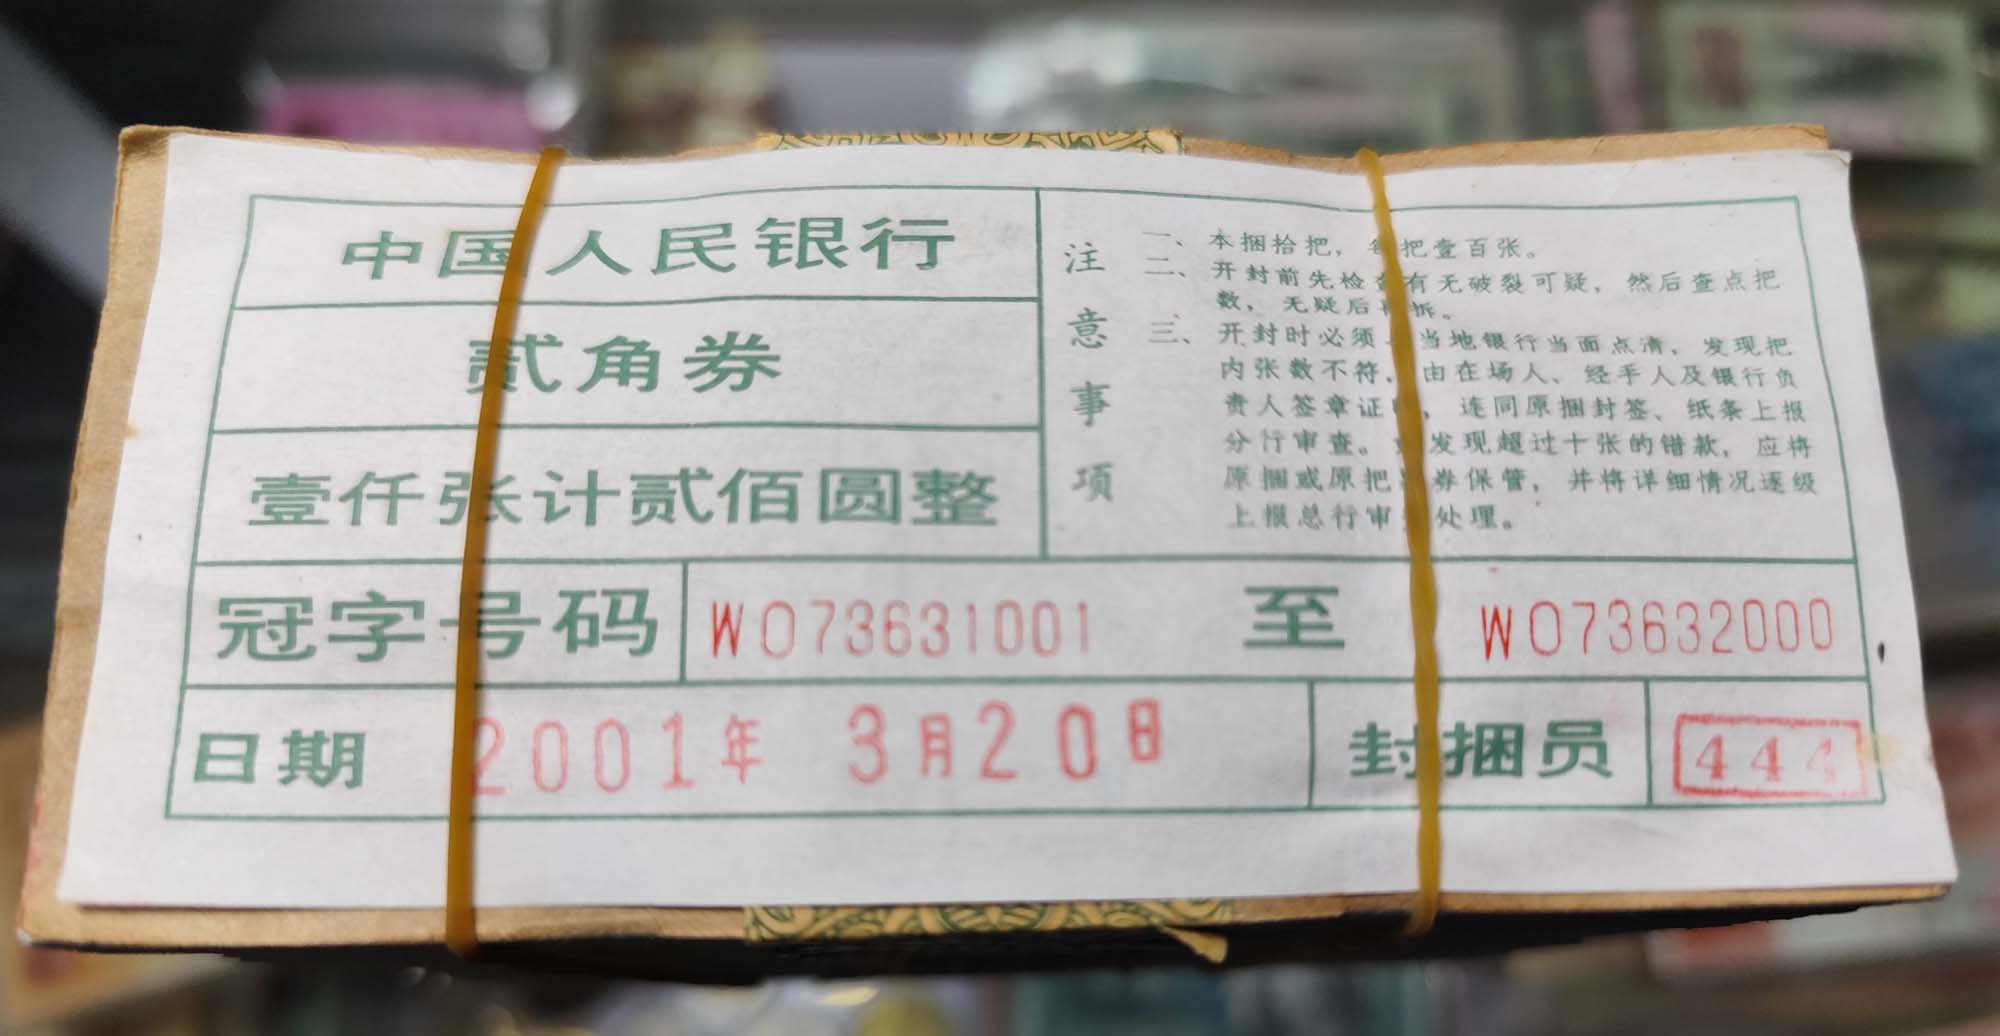 中国人民银行
贰角券
壹仟张计贰佰圆整
注意事项
一、本捆拾把，每把壹百张。
二、开封前先检查有无破裂可疑，然后查点把
数，无疑后再拆。
三、开封时必须 当地银行当面点清，发现把
内张数不符， 由在场人、经手人及银行负
责人签章证明，连同原捆封签、纸条上报
分行审查。 发现超过十张的错款，应将
原捆或原把 券保管，并将详细情况逐级
上报总行审 处理。
冠字号码 WO73631001 至 WO73632000
日期 2001年 3月20日 封捆员 444